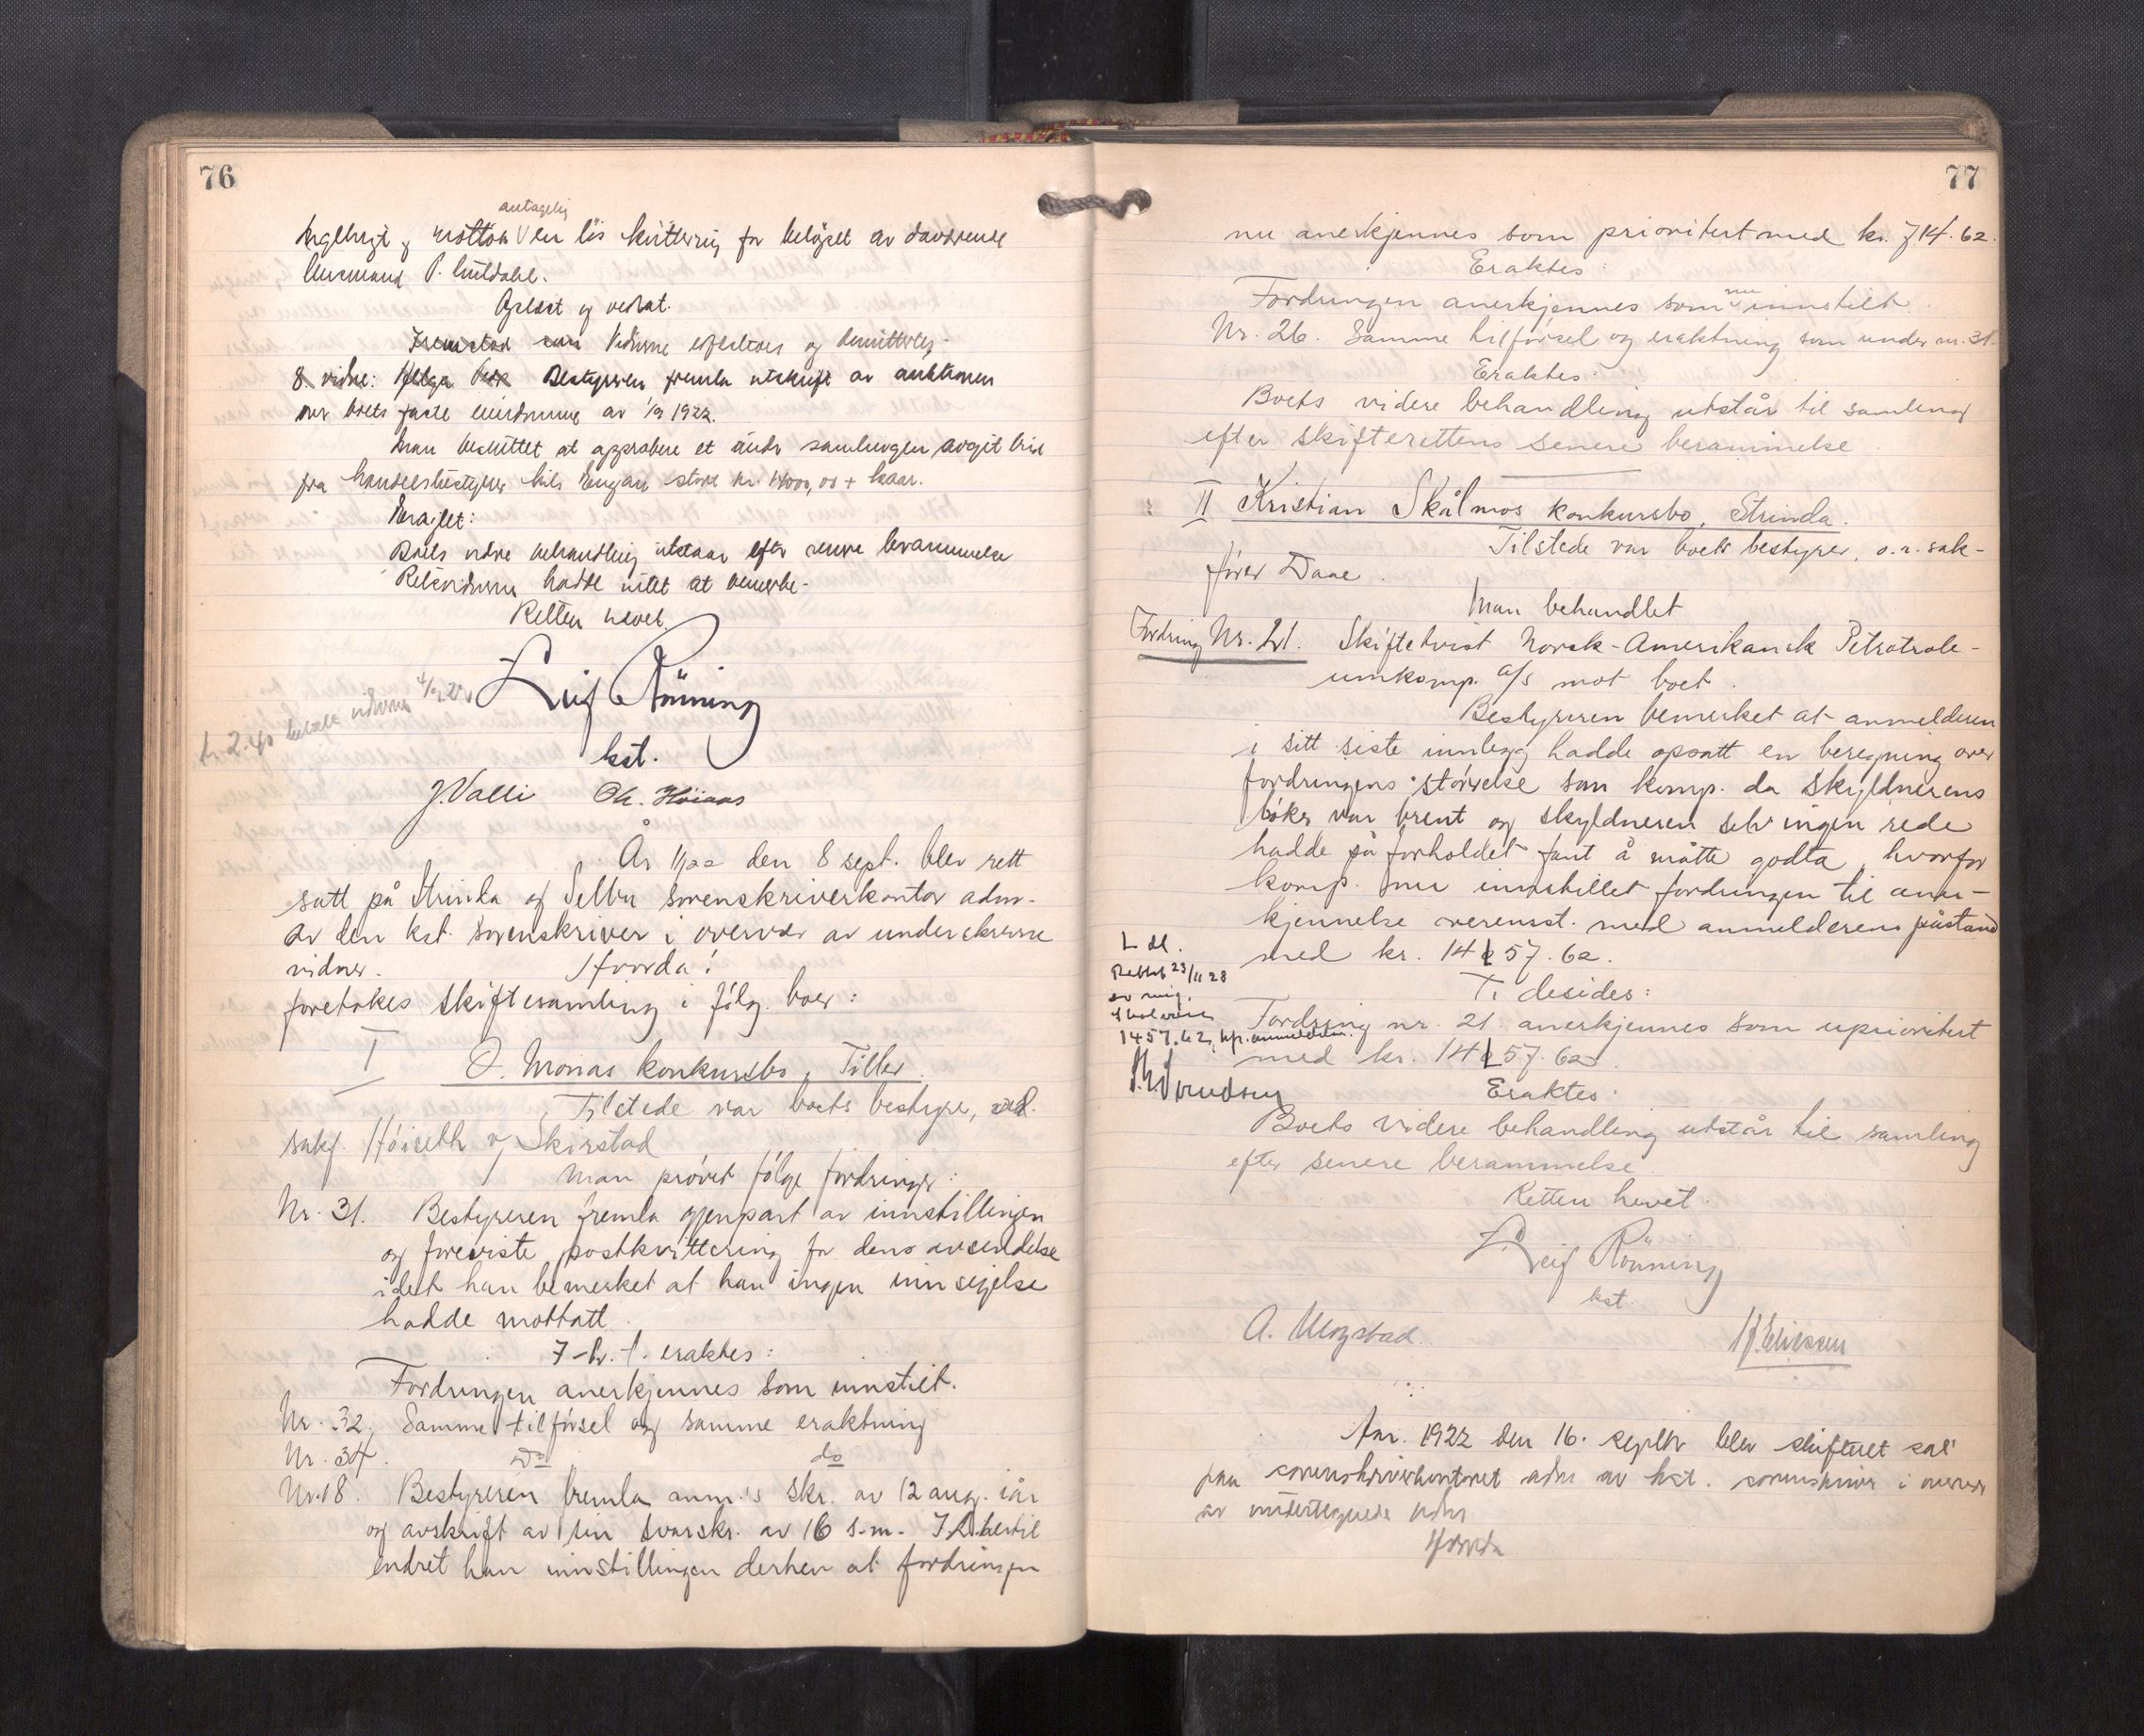 76
antagelig
og mottok en løs kvittering for beløpet av daværende
lensmand P. Huldahl.
Oplest og vedtat.
Vidnerne og demitteres.
8. vidne: Helga Bestyreren fremla utskrift av auktionen
over boets faste eiendomme av 1/9 1922.
Man besluttet at approbere et under samlingen avgit bud
fra handelsbestyrer Nils Engan stort kr. 14000,00 + kaar.
Eragtet:
Boets videre behandling utstaar efter senere berammelse
hadde intet at bemerke.
Retten hevet.
Leif Rönning
kst.
kr. 2.40 betalt vidnerne
J. Valli Ch. Höiaas
År 1922 den 8 sept. blev rett
satt på Strinda og Selbu sorenskriverkontor adm.
av den kst. sorenskriver i overvær av underskrevne
vidner. Hvorda!
foretokes skiftesamling i følg. boer:
I O. Moraas konkursbo, Tiller.
Tilstede var boets bestyrer,
sakf. Höiseth v/ Skirstad
Man prøvet følge fordringer:
Nr. 31. Bestyreren fremla gjenpart av innstillingen
og foreviste postkvittering for dens avsendelse
idet han bemerket at han ingen innsigelse
hadde mottatt.
eraktes:
Fordringen anerkjennes som innstilt.
Nr. 32. Samme tilførsel og samme eraktning
Nr. 34. Do do
Nr. 18. Bestyreren fremla anm.'s skr. av 12 aug. iår
og avskrift av sin svarskr. av 16 s.m. I h. hertil
endret han innstillingen derhen at fordringen
77
nu anerkjennes som prioritert med kr. 714.62.
Eraktes:
Fordringen anerkjennes som nu innstilt.
Nr. 26. Samme tilførsel og eraktning som under nr. 31.
Eraktes:
Boets videre behandling utstår til samling
efter skifterettens senere berammelse.
II Kristian Skålmos konkursbo, Strinda.
Tilstede var boets bestyrer, o.r. sak-
fører Daae.
Man behandlet
Fordring Nr. 21. Skiftetvist Norsk-Amerikansk Petrotrole-
umkomp. A/S mot boet.
Bestyreren bemerket at anmelderen
i sitt siste innlegg hadde opsatt en beregning over
fordringens størrelse som komp. da skyldnerens
bøker var brent og skyldneren selv ingen rede
hadde på forholdet fant å måtte godta, hvorfor
komp. nu innstillet fordringen til aner-
kjennelse overenst. med anmelderens påstand
med kr. 1457.62.
Ti desides:
Fordring nr. 21. anerkjennes som uprioritert
med kr. 1457.62.
Rettet 23/11 28
av mig.
1457.62, anmeldelsen.
Eraktes:
Boets videre behandling utstår til samling
efter senere berammelse.
Retten hevet.
Leif Rönning
kst.
A. Mogstad. Ellessen
Aar. 1922 den 16. septbr blev skifteret sat
paa sorenskriverkontoret adm av kst. sorenskriver i overvær
av undertegnede vidner
Hvorda